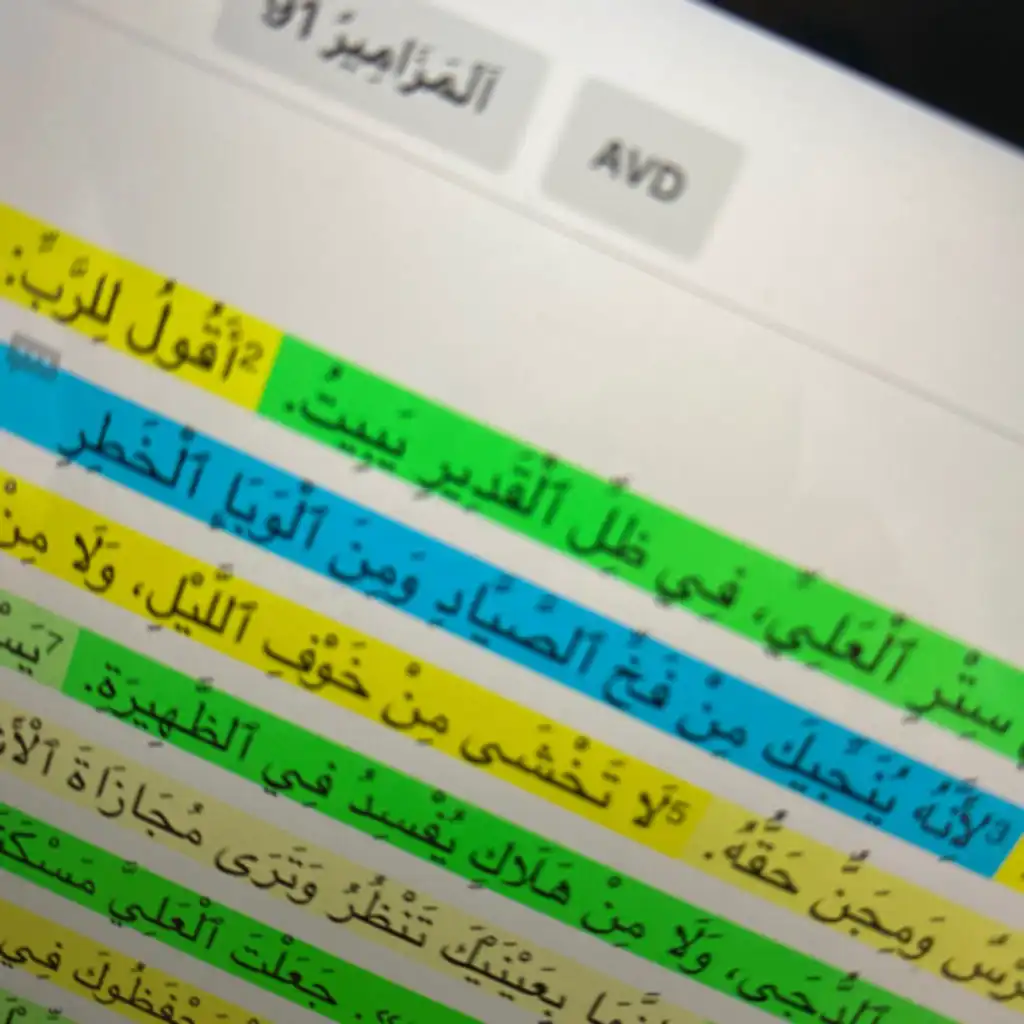 AVD
اَلْمَزَامِيرُ 91
سِتْرِ ٱلْعَلِيِّ، فِي ظِلِّ ٱلْقَدِيرِ يَبِيتُ. 2أَقُولُ لِلرَّبِّ:
3لِأَنَّهُ يُنَجِّيكَ مِنْ فَخِّ ٱلصَّيَّادِ وَمِنَ ٱلْوَبَإِ ٱلْخَطِرِ
وَمِجَنٌّ حَقُّهُ. 5لَا تَخْشَى مِنْ خَوْفِ ٱللَّيْلِ، وَلَا مِنْ
ٱلدُّجَى، وَلَا مِنْ هَلَاكٍ يُفْسِدُ فِي ٱلظَّهِيرَةِ. 7
بِعَيْنَيْكَ تَنْظُرُ وَتَرَى مُجَازَاةَ
جَعَلْتَ ٱلْعَلِيَّ
فِي